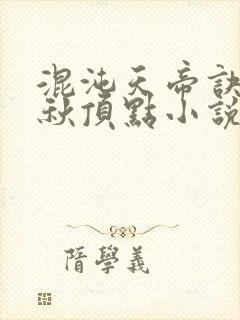 混沌天帝訣
秋頂點小說
隋學義